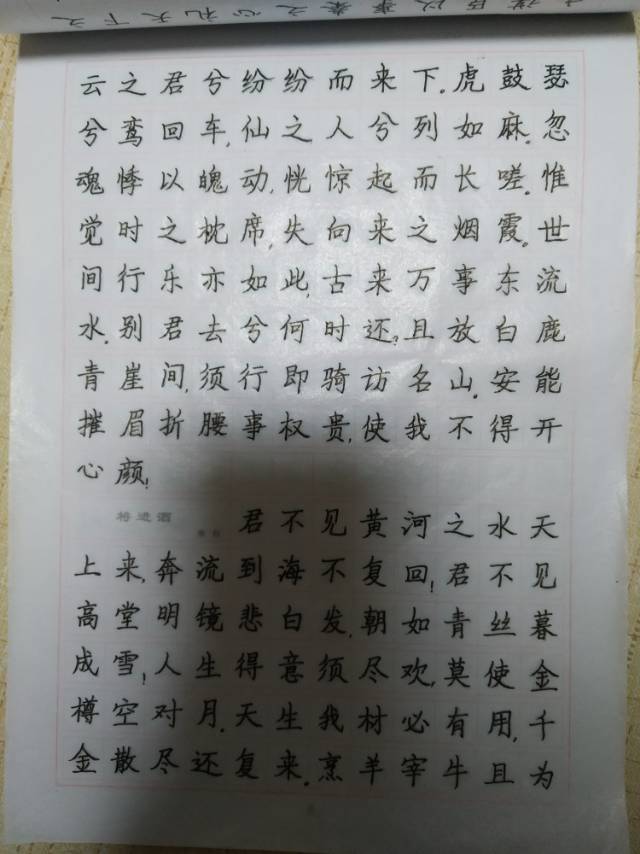 云之君兮纷纷而来下.虎鼓瑟
兮鸾回车,仙之人兮列如麻.忽
魂悸以魄动,恍惊起而长嗟.惟
觉时之枕席,失向来之烟霞.世
间行乐亦如此,古来万事东流
水.别君去兮何时还?且放白鹿
青崖间,须行即骑访名山.安能
摧眉折腰事权贵,使我不得开
心颜!
将进酒
君不见黄河之水天
上来,奔流到海不复回!君不见
高堂明镜悲白发,朝如青丝暮
成雪!人生得意须尽欢,莫使金
樽空对月.天生我材必有用,千
金散尽还复来.烹羊宰牛且为